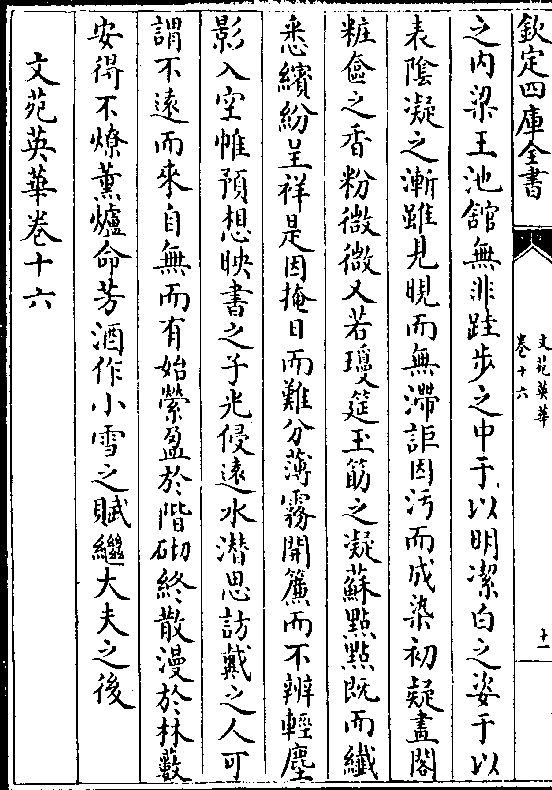 欽定四庫全書
文苑英華
卷十六
十一
之内梁王池館無非跬步之中于以明潔白之姿于以
表陰凝之漸雖見晛而無滯詎因污而成染初疑畫閣
粧奩之香粉微微又若瓊筵玉筯之凝蘇點點既而纖
悉繽紛呈祥是因掩日而難分薄霧開簾而不辨輕塵
影入空帷預想映書之子光侵遠水潜思訪戴之人可
謂不遠而來自無而有始縈盈於階砌終散漫於林藪
安得不燎薰爐命芳酒作小雪之賦繼大夫之後
文苑英華卷十六